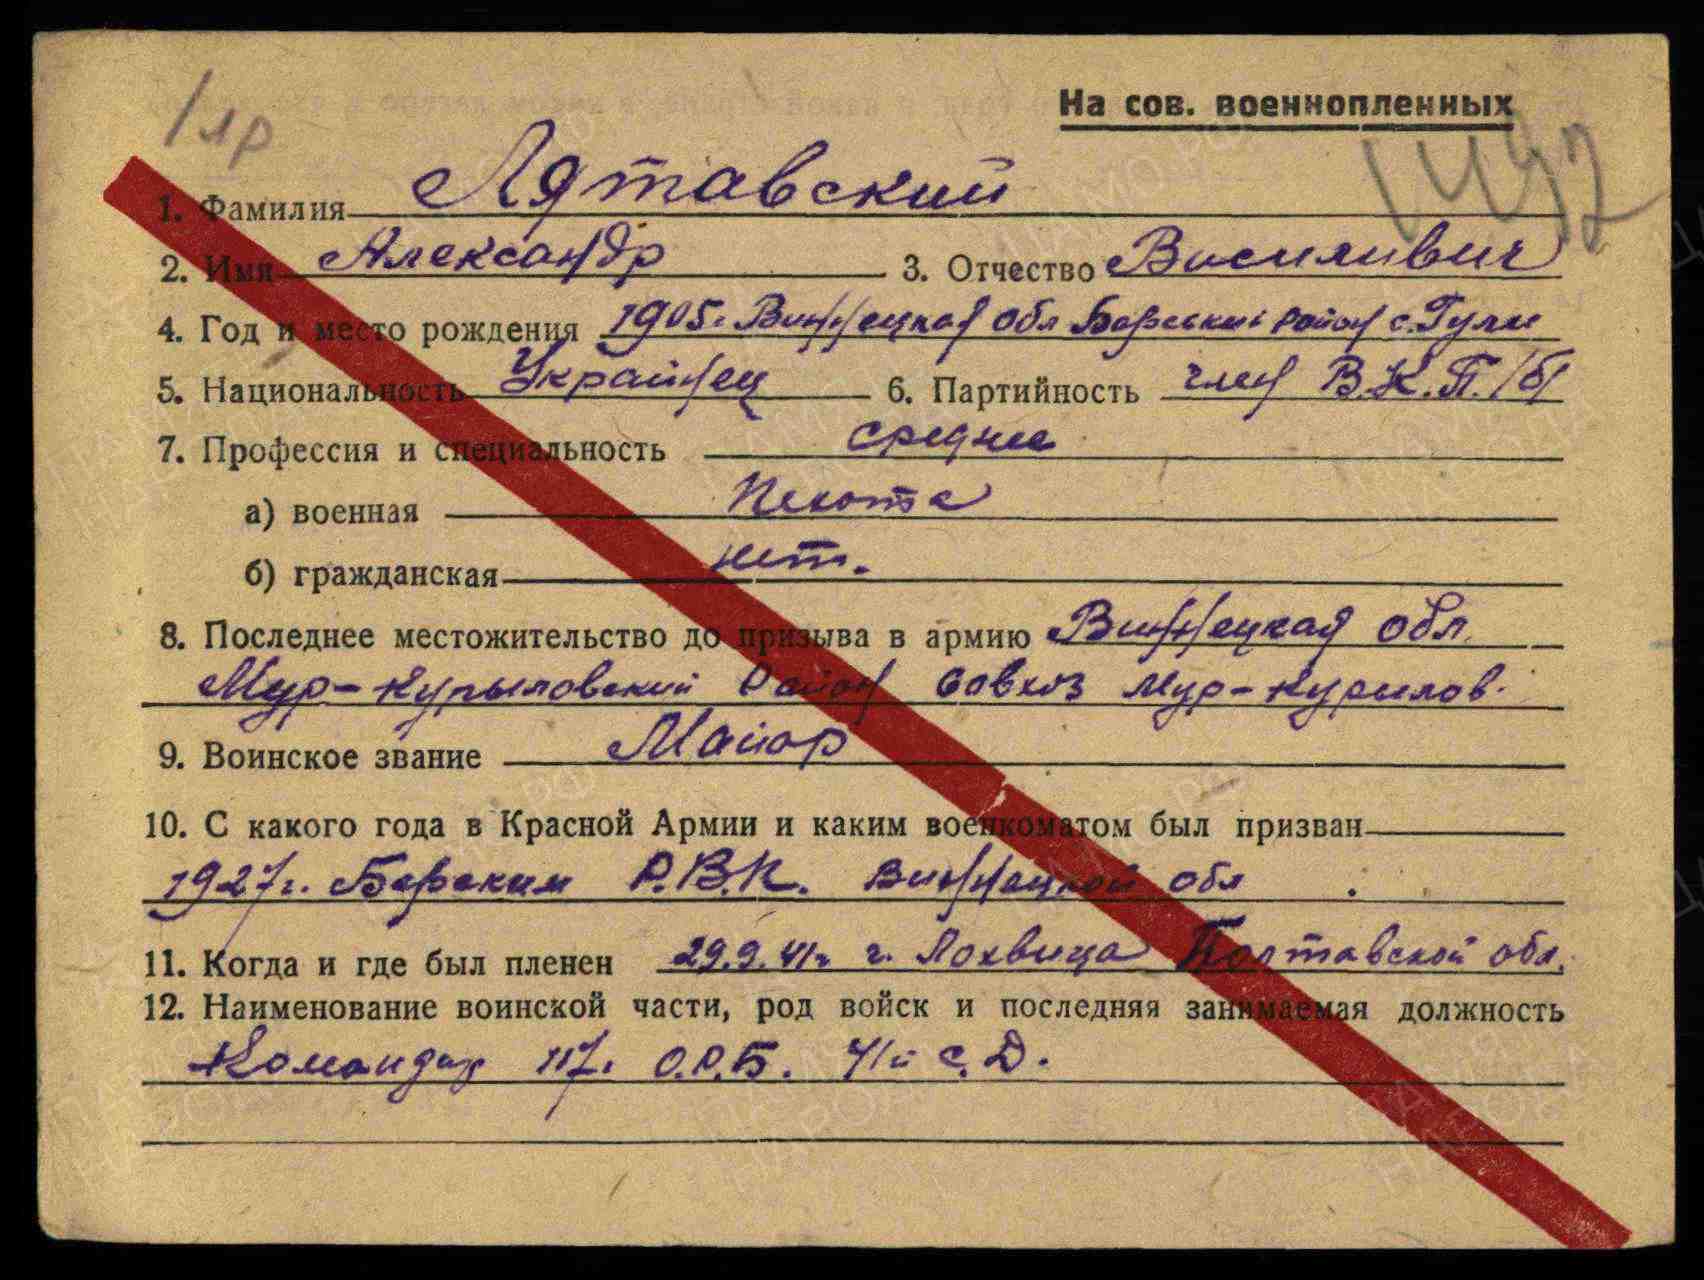 1 пр
На сов. военнопленных
1432
1. Фамилия Лятавский
2. Имя Александр 3. Отчество Василивич
4. Год и место рождения 1905г. Винницкая обл Барський район с. Гули
5. Национальность Украинец 6. Партийность член В.К.П./б/
7. Профессия и специальность среднее
а) военная Пехота
б) гражданская нет.
8. Последнее местожительство до призыва в армию Винницкая обл.
Мур-Курыловский Район Совхоз Мур-Курилов.
9. Воинское звание Майор
10. С какого года в Красной Армии и каким военкоматом был призван
1927г. Барским Р.В.К. Винницкой обл
11. Когда и где был пленен 29.9.41г. г. Лохвица Полтавской обл.
12. Наименование воинской части, род войск и последняя занимаемая должность
Командир 117. О.Р.Б. 41й С.Д.